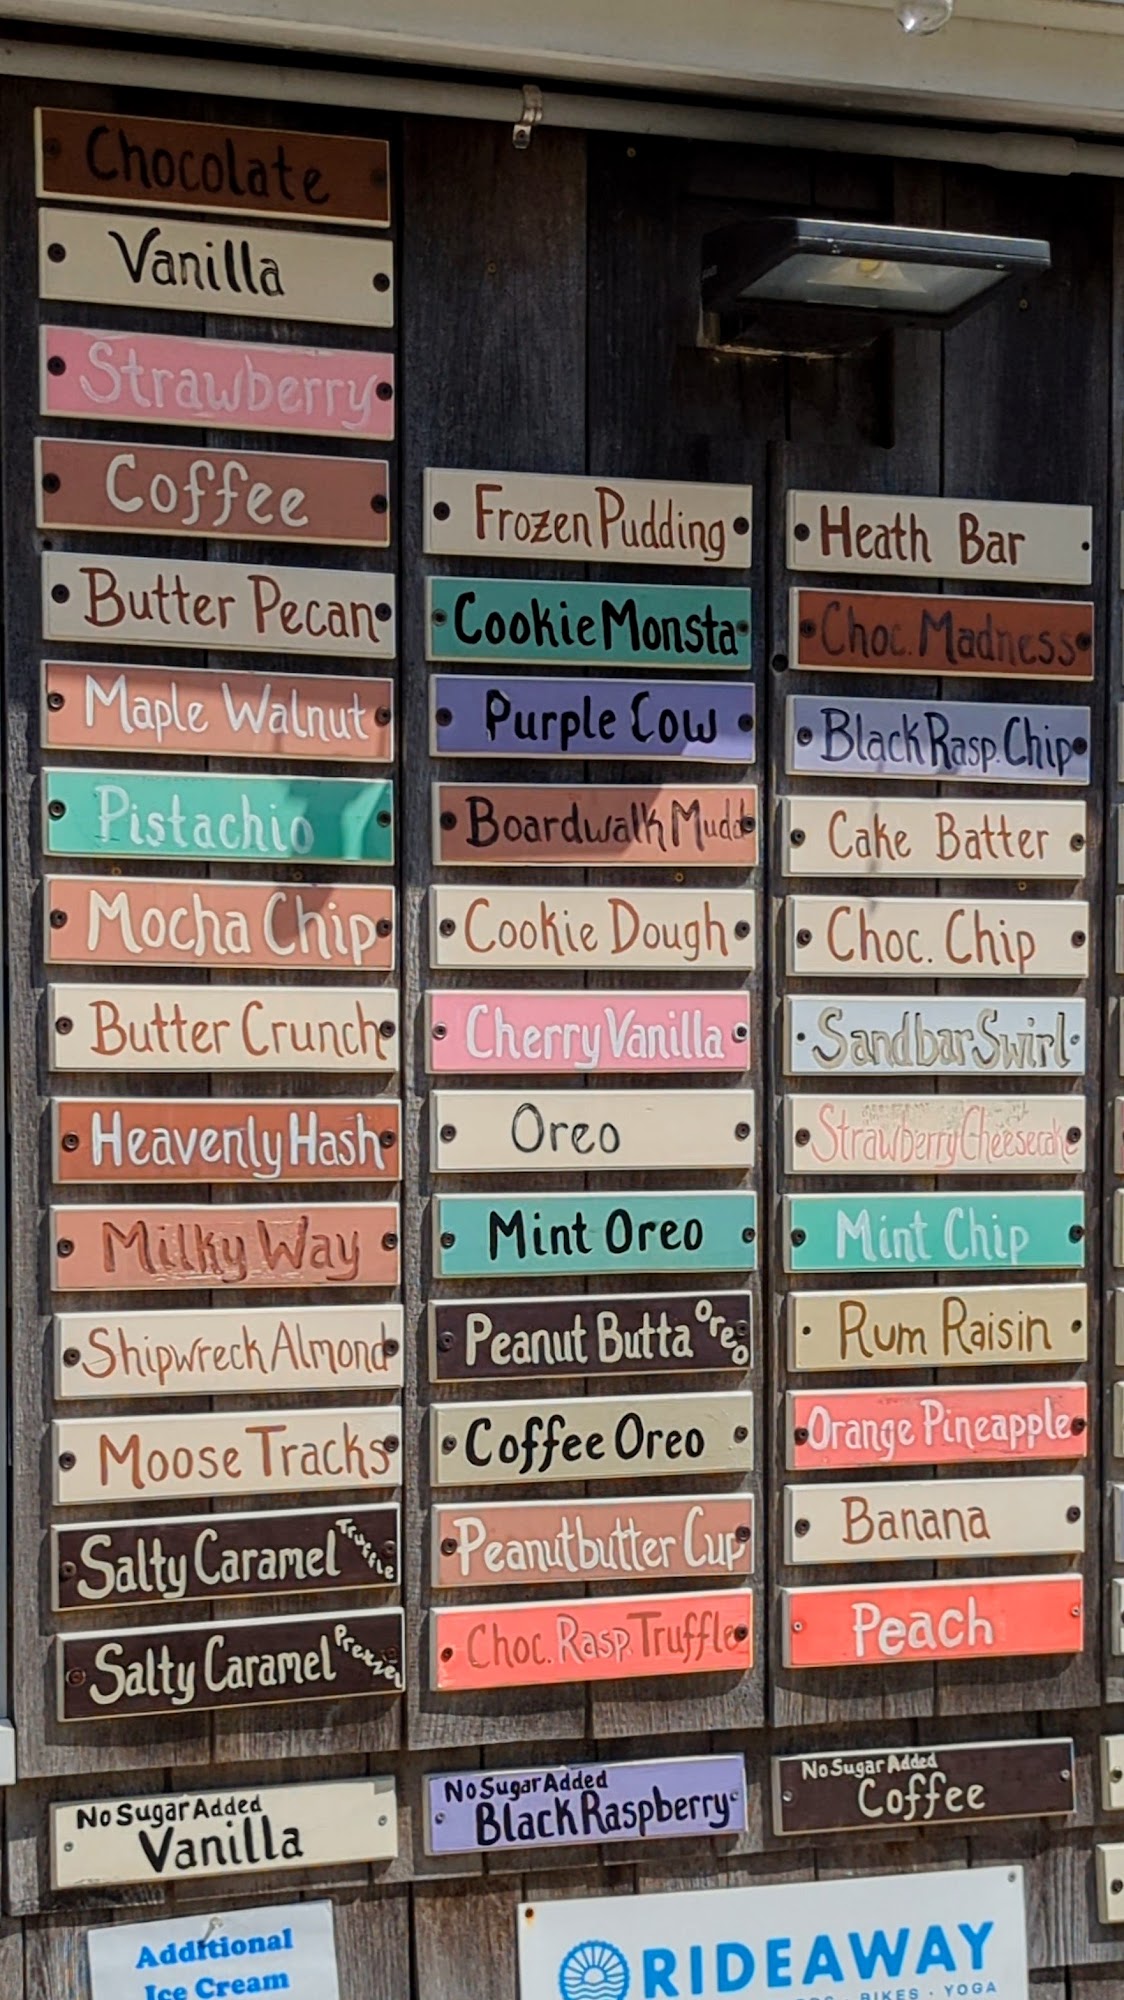 Chocolate
Vanilla
Strawberry
Coffee
Butter Pecan
Maple Walnut
Pistachio
Mocha Chip
Butter Crunch
Heavenly Hash
Milky Way
Shipwreck Almond
Moose Tracks
Salty Caramel Truffle
Salty Caramel Pretzel
Frozen Pudding
Cookie Monsta
Purple Cow
Boardwalk Mudd
Cookie Dough
Cherry Vanilla
Oreo
Mint Oreo
Peanut Butta Oreo
Coffee Oreo
Peanutbutter Cup
Choc. Rasp. Truffle
Heath Bar
Choc. Madness
Black Rasp. Chip
Cake Batter
Choc. Chip
Sandbar Swirl
Strawberry Cheesecake
Mint Chip
Rum Raisin
Orange Pineapple
Banana
Peach
No Sugar Added
Vanilla
No Sugar Added
Black Raspberry
No Sugar Added
Coffee
Additional
Ice Cream
RIDEAWAY
BIKES · YOGA